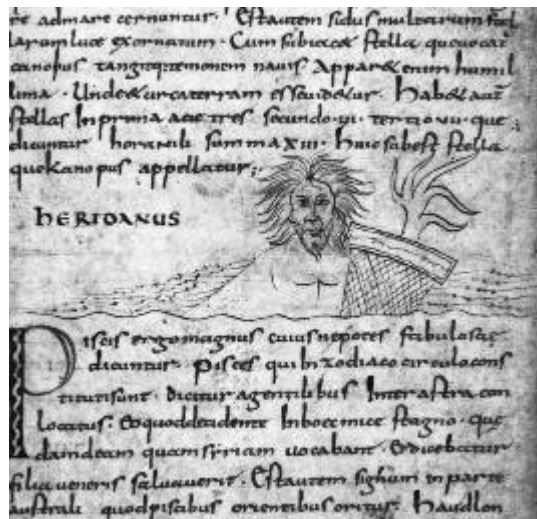 re admare cernuntur. Est autem sidus multarum stel
larum luce exornatum. Cum subiacet stella que uocat̄
canopus tangitque temonem nauis Apparet enim humil
lima. Unde et circa terram esse uidetur. Habet aut̄
stellas In prima acie tres secundo. ui. tertio uii. que
dicuntur horaruli summa xiii. Huic subest stella
que kanopus appellatur;
heridanus
Piscis ergo magnus cuius nepotes fabulosae
dicuntur. pisces qui In zodiaco circulo cons
tituti sunt. Dicitur a gentilibus Inter astra con
locatus. Eo quod decidente In boetmice stagno. que
dam deam quam syriam uocabant. Et dicebatur
filia ueneris saluauerit. Est autem signum in parte
australi quod piscibus orientibus oritur. Haud lon